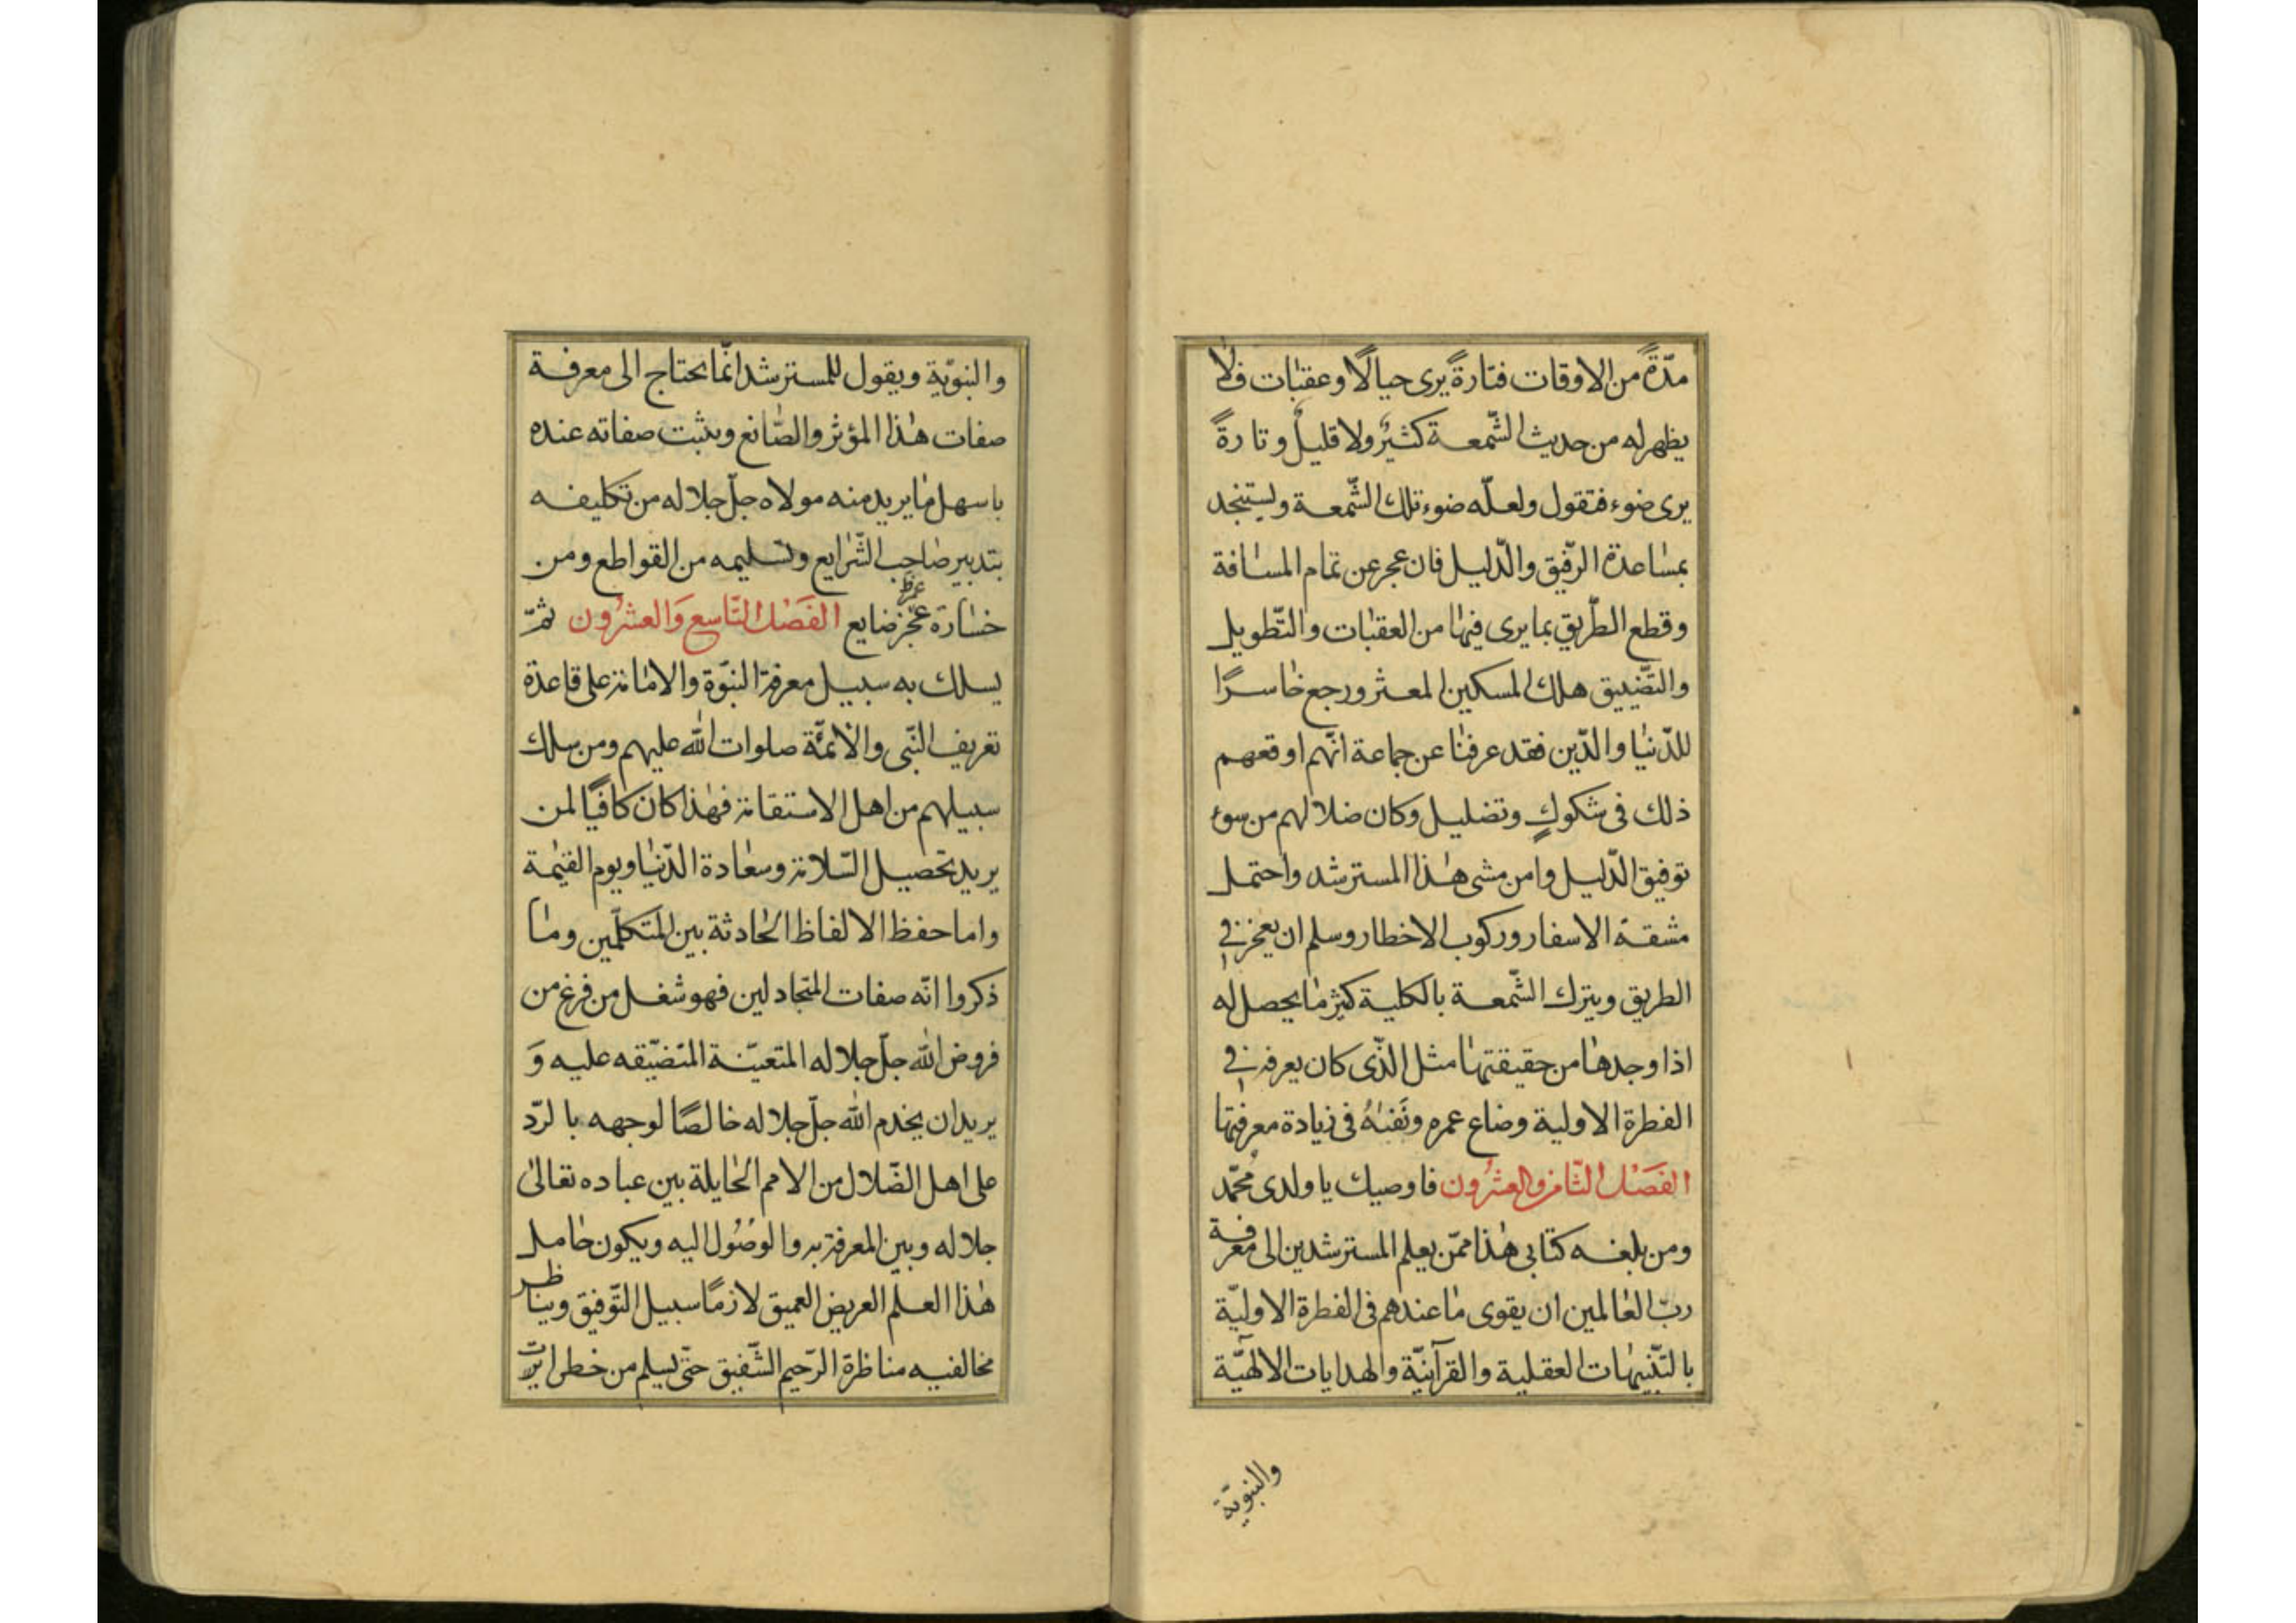 مدّةً من الاوقات فتارةً يرى جبالًا وعقبات فلا
يظهر له من حديث الشّمعة كثيرٌ ولا قليلٌ وتارةً
يرى ضوء فتقول ولعلّه ضوء تلك الشّمعة ويستنجد
بمساعدة الرّفيق والدّليل فان عجز عن تمام المسافة
وقطع الطّريق بما يرى فيها من العقبات والتّطويل
والتّضييق هلك المسكين المعثر ورجع خاسرًا
للدّنيا والدّين فقد عرفنا عن جماعة انّهم اوقعهم
ذلك فى شكوكٍ وتضليل وكان ضلالهم من سوء
توفيق الدّليل وامن مشى هذا المسترشد واحتمل
مشقة الاسفار وركوب الاخطار وسلم ان يعجز فى
الطريق ويترك الشّمعة بالكلية كثر ما يحصل له
اذا وجدها من حقيقتها مثل الّذى كان يعرفه فى
الفطرة الاولية وضاع عمره ونفسه فى زيادة معرفتها
الفصل الثّامن والعشرون فاوصيك يا ولدى محمّد
ومن بلغه كتابى هذا ممّن يعلم المسترشدين الى معرفة
ربّ العالمين ان يقوى ما عندهم فى الفطرة الاوليّة
بالتّنبيهات العقلية والقرآنيّة والهدايات الالهيّة
والنبويّة
والنبويّة ويقول للمسترشد انّما يحتاج الى معرفة
صفات هذا المؤثر والصّانع ويثبت صفاته عنده
باسهل ما يريد منه مولاه جلّ جلاله من تكليفه
بتدبير صاحب الشّرايع وتسليمه من القواطع ومن
خسارة عجز ضايع الفصل التّاسع والعشرون ثمّ
يسلك به سبيل معرفة النبوّة والامامة على قاعدة
تعريف النّبى والائمّة صلوات الله عليهم ومن سلك
سبيلهم من اهل الاستقامة فهذا كان كافيًا لمن
يريد تحصيل السّلامة وسعادة الدّنيا ويوم القيمة
واما حفظ الالفاظ الحادثة بين المتكلّمين وما
ذكروا انّه صفات المتجادلين فهو شغل من فرغ من
فروض الله جلّ جلاله المتعيّنة المتضيّقه عليه وَ
يريد ان يخدم الله جلّ جلاله خالصًا لوجهه بالرّد
على اهل الضّلال من الامم الحايلة بين عباده تعالى
جلاله وبين المعرفة به والوصُول اليه ويكون حامل
هذا العلم العريض العميق لازمًا سبيل التّوفيق ويناظر
مخالفيه مناظرة الرّحيم الشّفيق حتّى يسلم من خطر